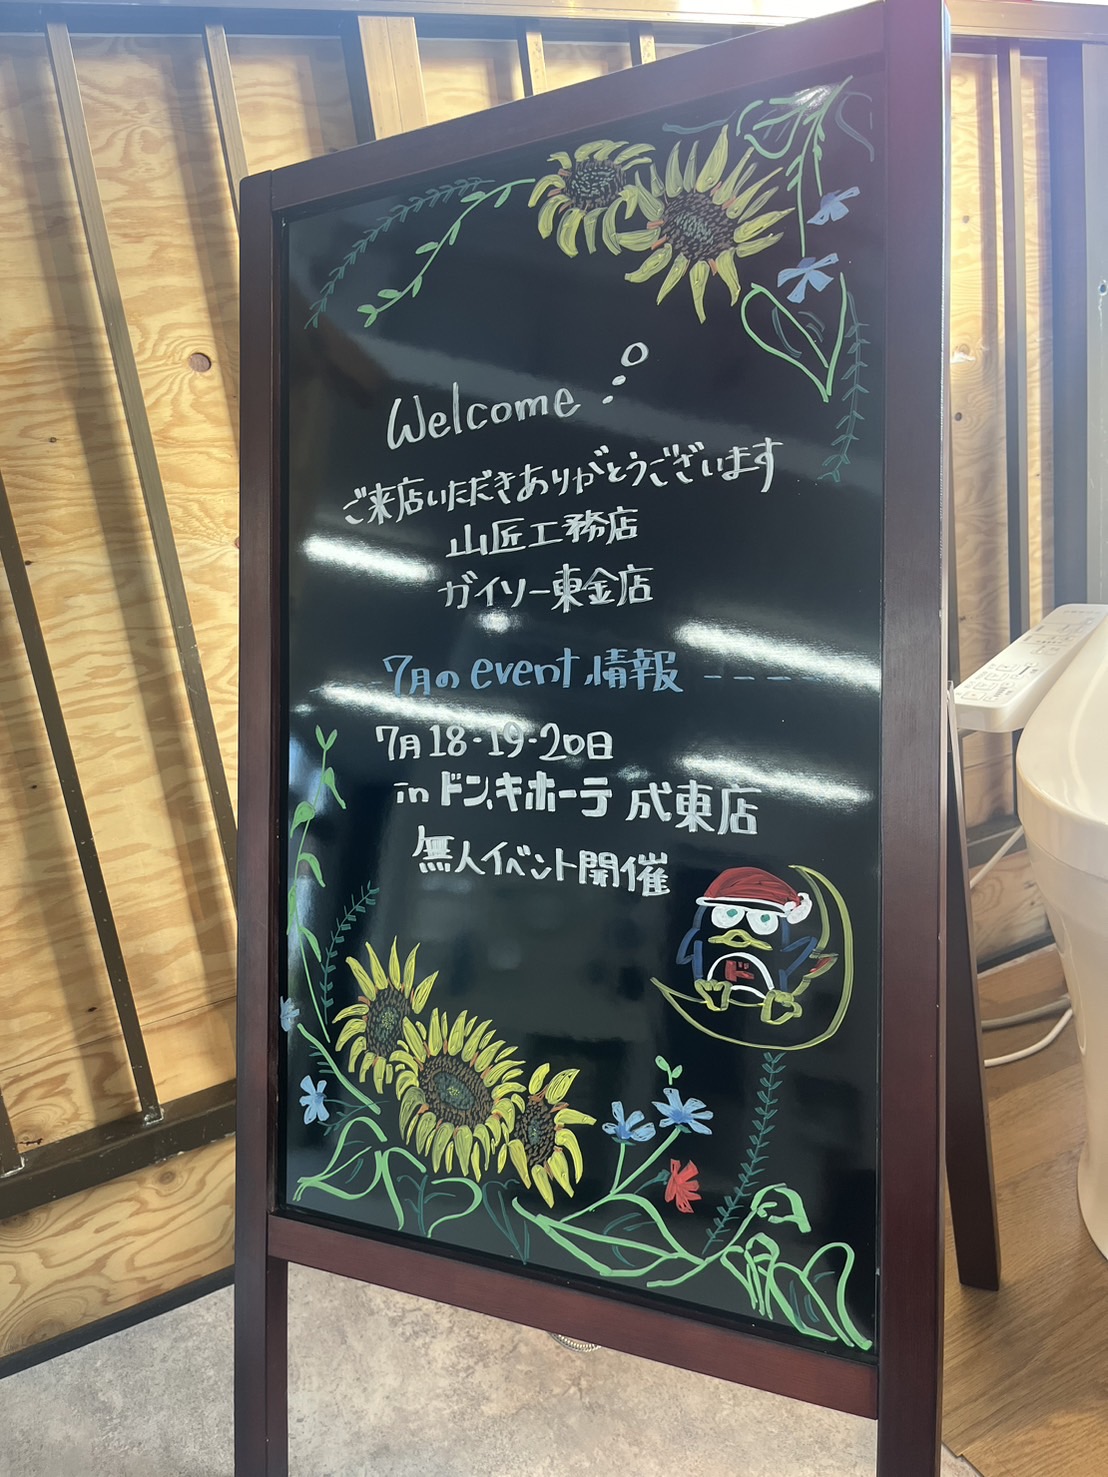 Welcome
ご来店いただきありがとうございます
山匠工務店
ガイソー東金店
7月のevent情報
7月18-19-20日
in ドン.キホーテ 成東店
無人イベント開催
ド